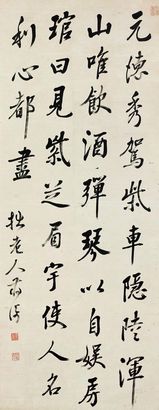 元德秀駕柴車隱陸渾
山唯飲酒彈琴以自娛房
琯曰見紫芝眉宇使人名
利心都盡
拙老人蔣衡